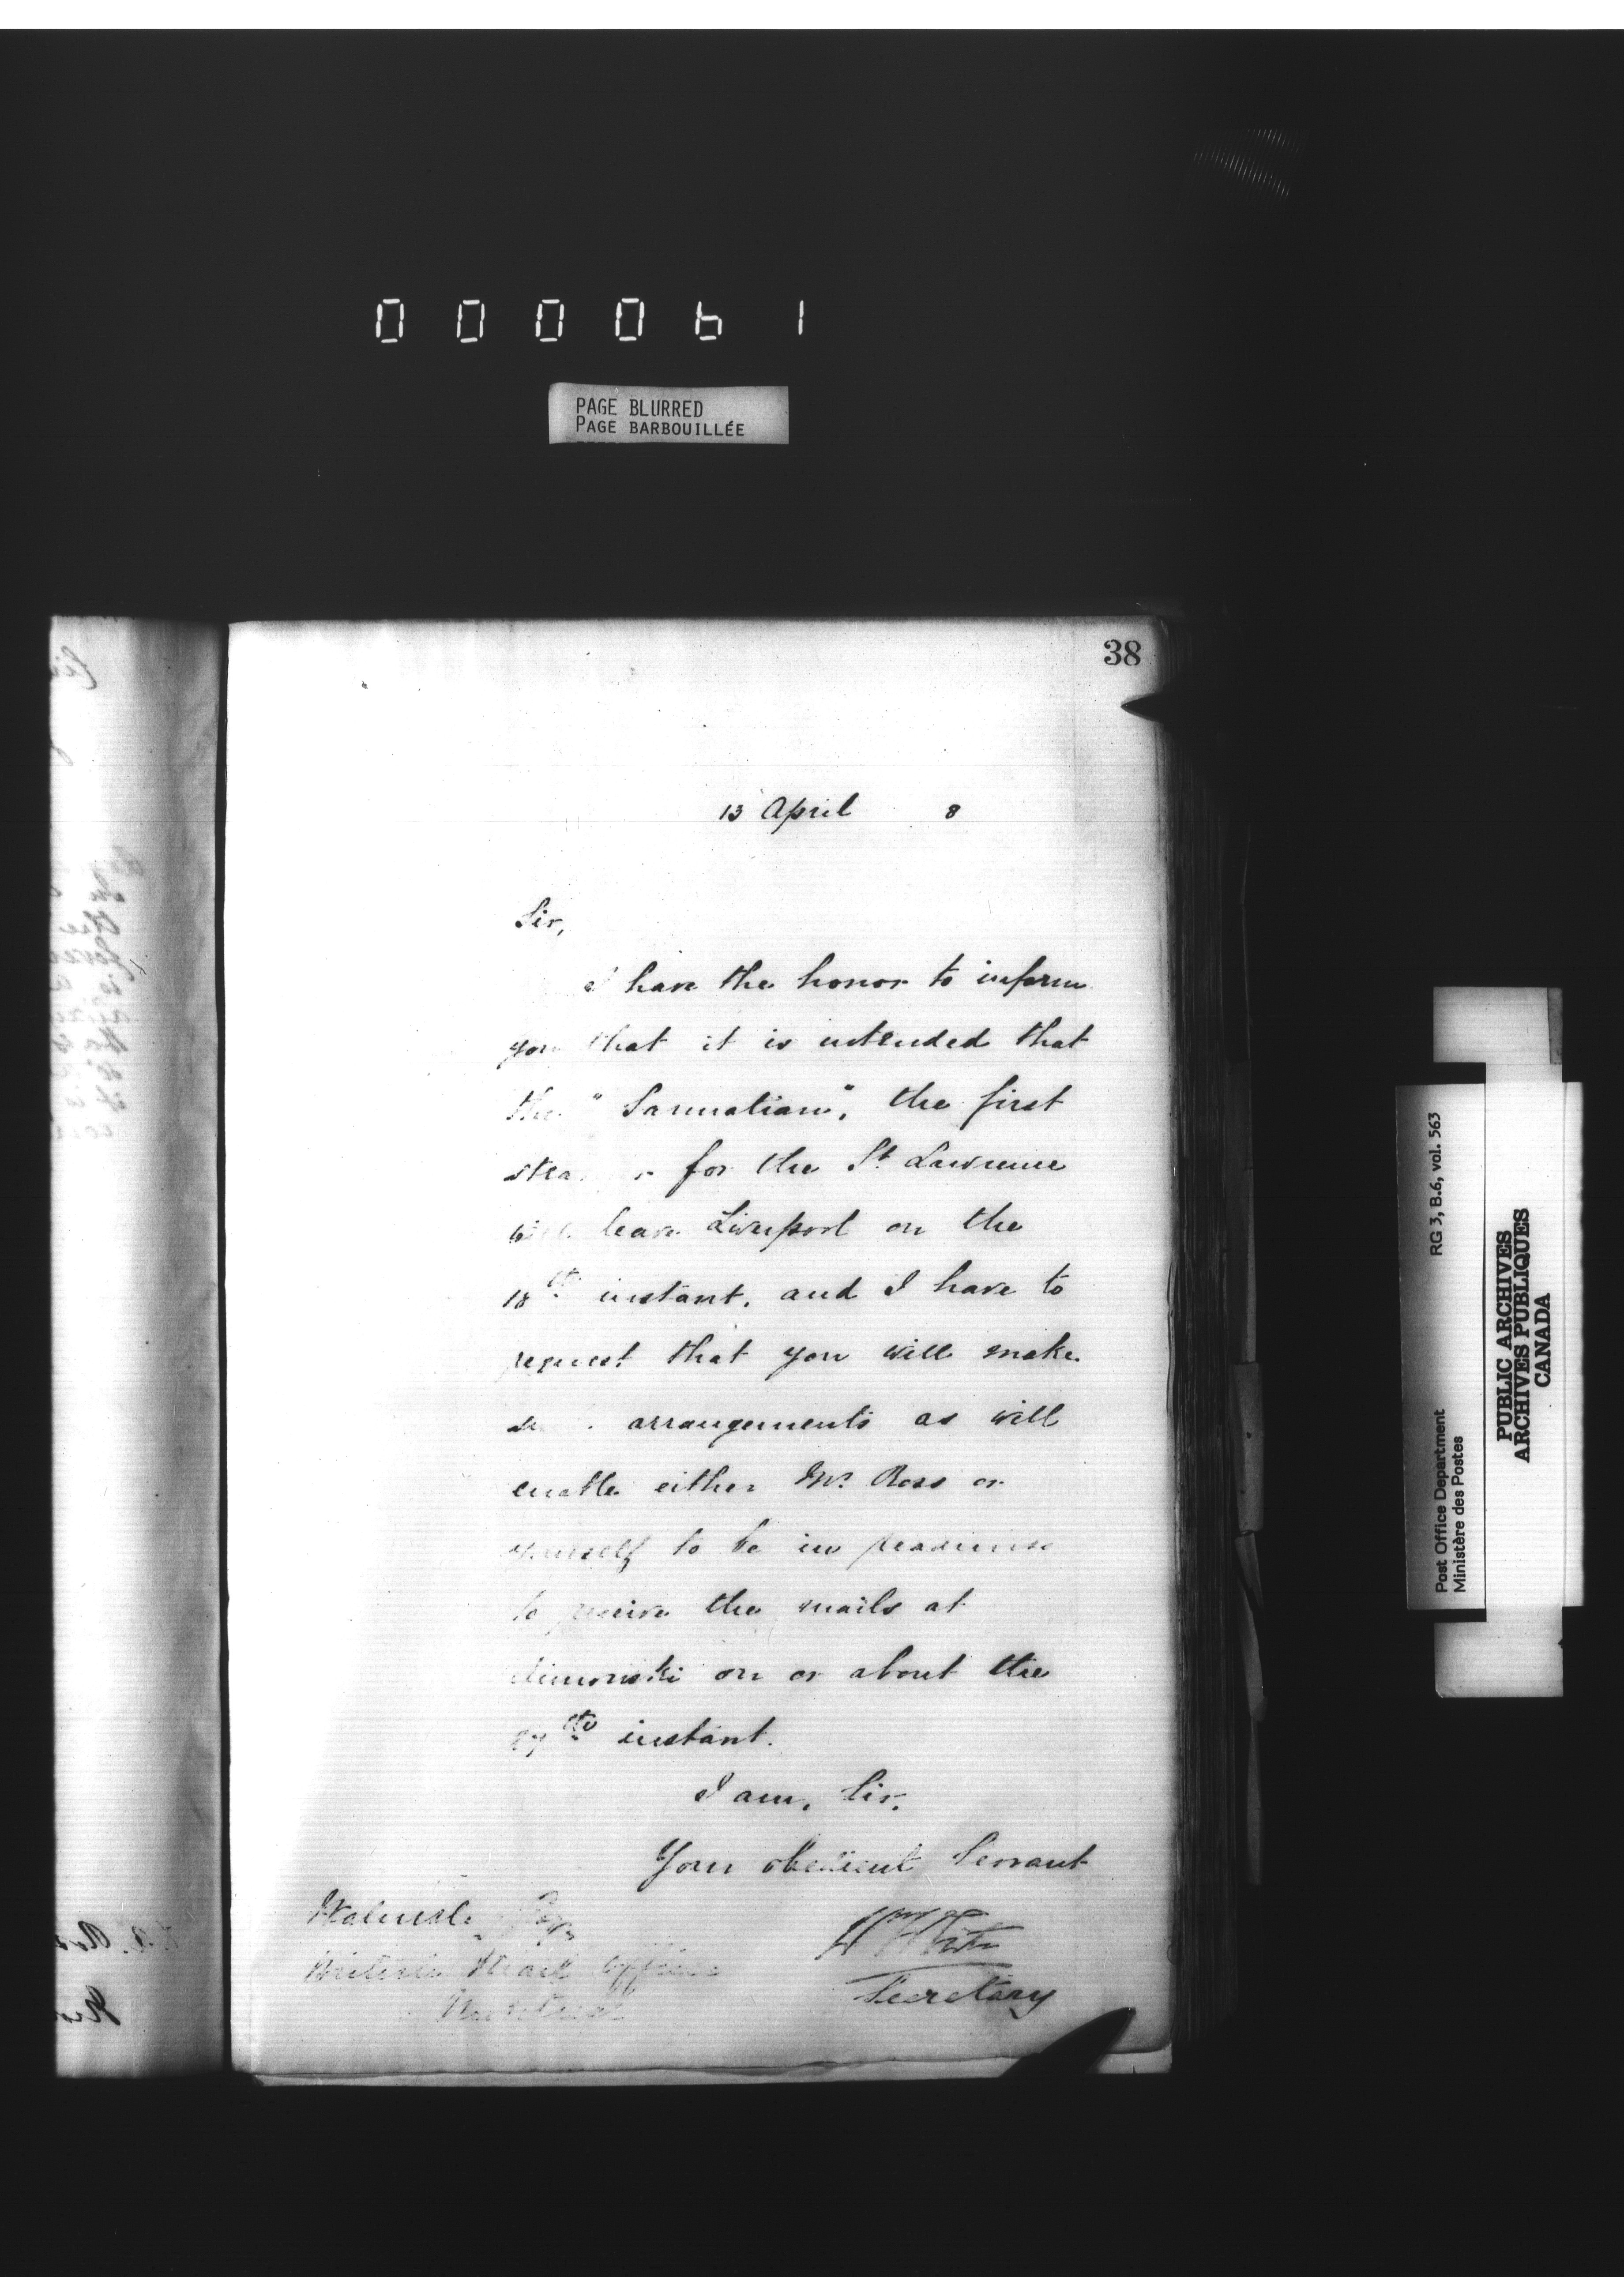 000061
PAGE BLURRED
PAGE BARBOUILLÉE
38
13 April 8
Sir,
I have the honor to inform
you that it is intended that
the "Sarmatian", the first
for the St. Lawrence
will leave Liverpool on the
18th instant, and I have to
request that you will make
arrangements as will
enable either Mr. Ross or
yourself to be in readiness
to receive the mails at
Rimouski on or about the
27th instant.
I am, Sir,
Your obedient Servant
Wm White
Secretary
British Mail Office
Montreal
RG 3, B.6, vol. 563
Post Office Department
Ministère des Postes
PUBLIC ARCHIVES
ARCHIVES PUBLIQUES
CANADA